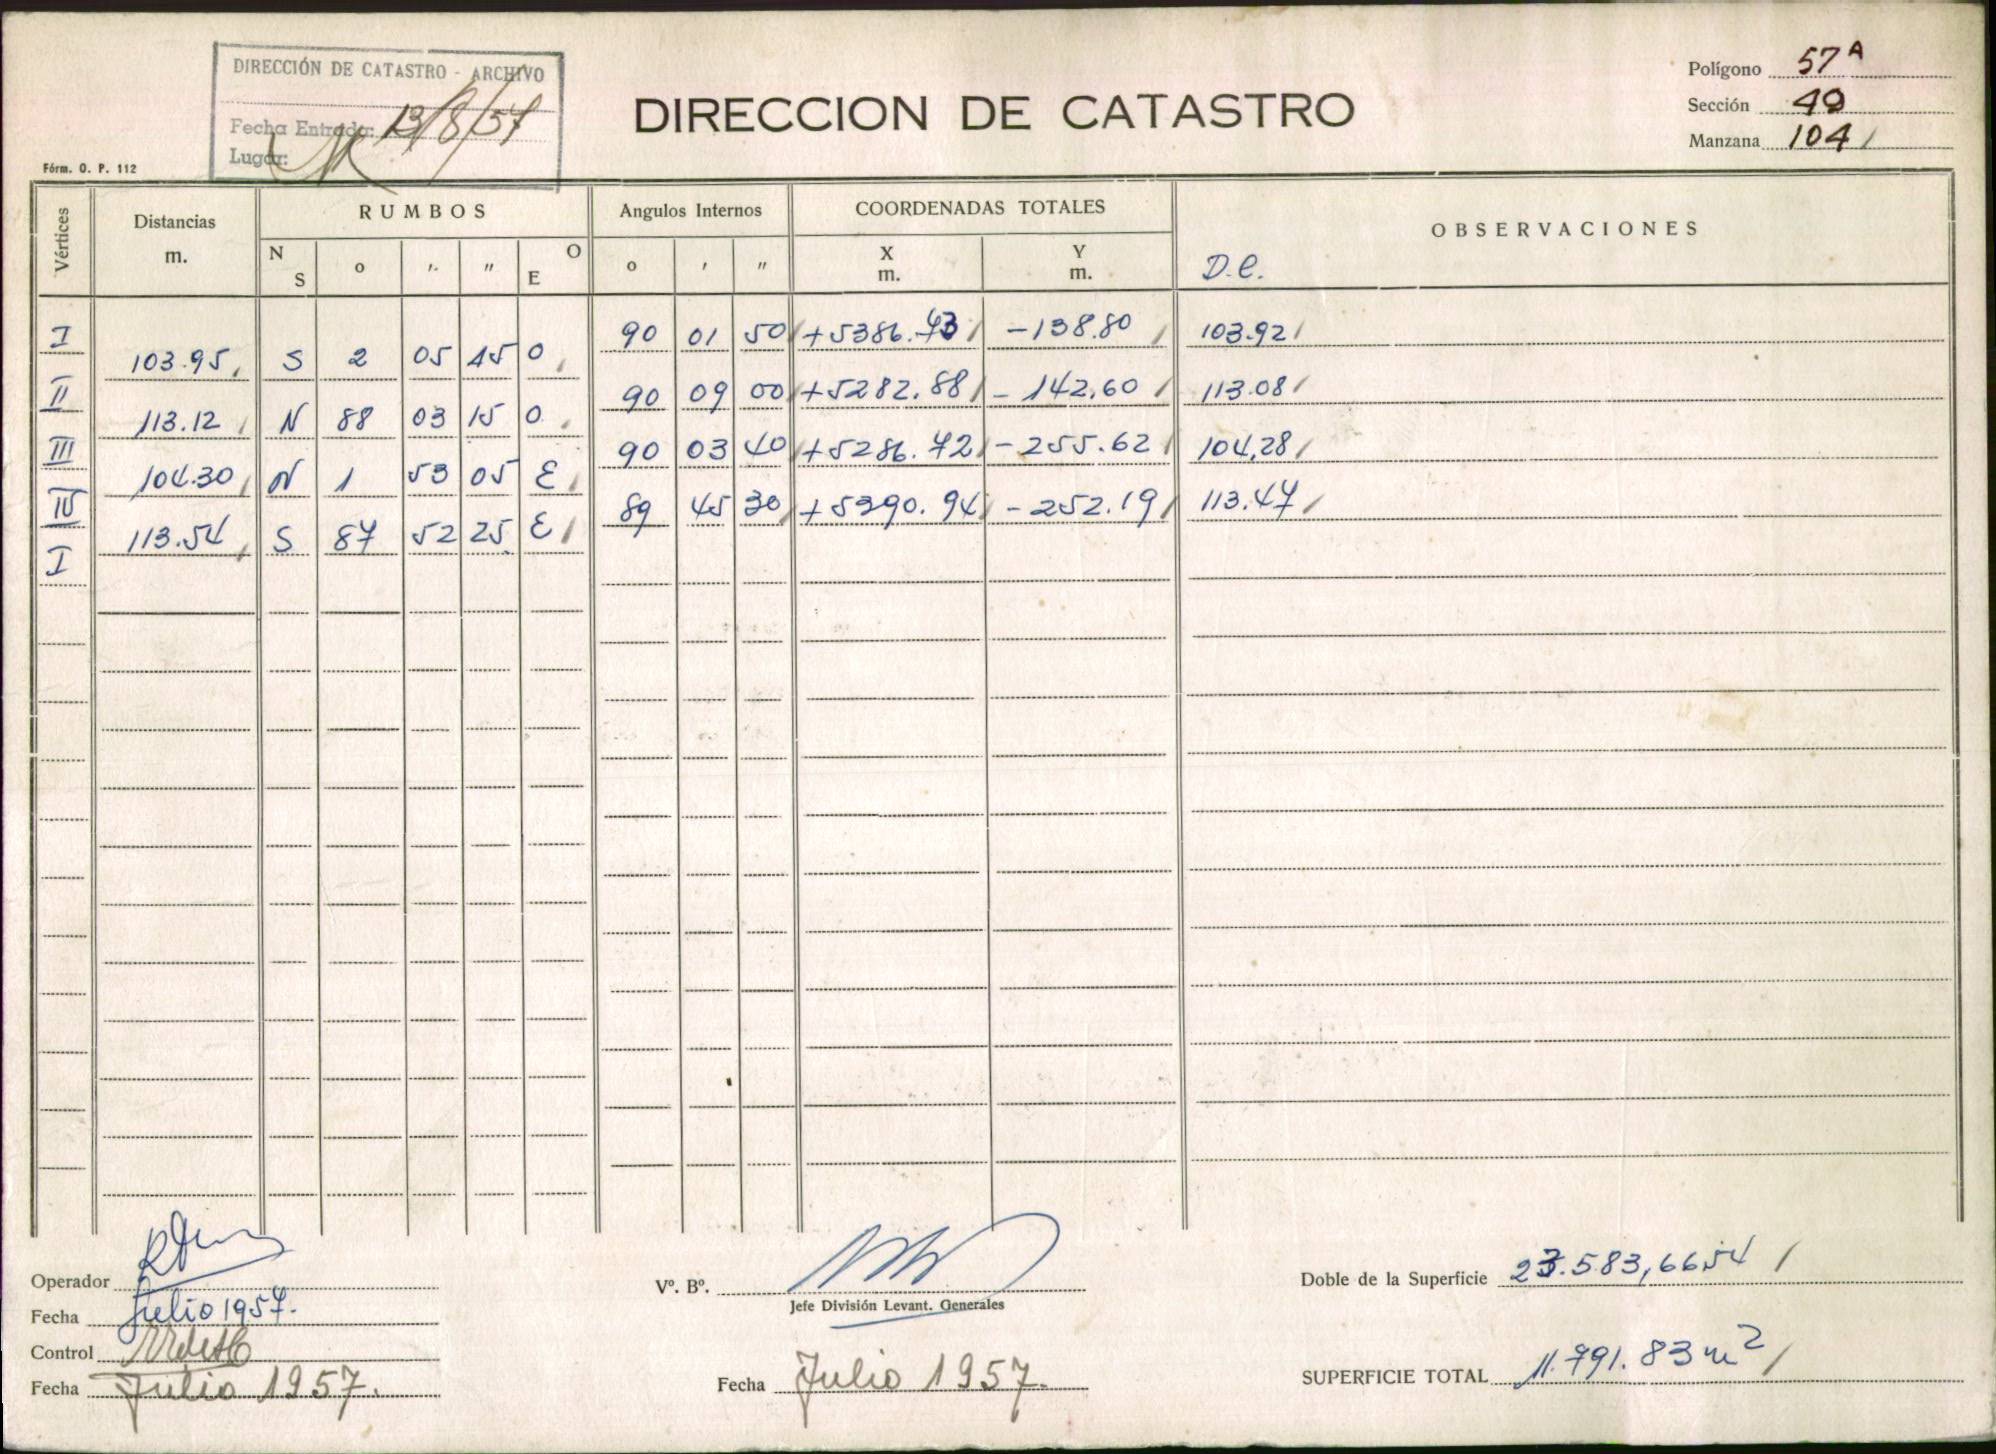 DIRECCIÓN DE CATASTRO - ARCHIVO
Fecha Entrada: 13/8/57
Lugar:
DIRECCION DE CATASTRO
Polígono 57A
Sección 49
Manzana 104
Fórm. O. P. 112
Vértices Distancias m. RUMBOS Angulos Internos COORDENADAS TOTALES OBSERVACIONES
N S o ' " O E o ' " X m. Y m. D.C.
I 90 01 50 +5386.73 -138.80 103.92
103.95 S 2 05 45 O
II 90 09 00 +5282.88 -142.60 113.08
113.12 N 88 03 15 O
III 90 03 40 +5286.72 -255.62 104.28
104.30 N 1 53 05 E
IV 89 45 30 +5390.94 -252.19 113.47
113.54 S 87 52 25 E
I
Operador
Fecha Julio 1957.
Control
Fecha Julio 1957.
Vº. Bº.
Jefe División Levant. Generales
Fecha Julio 1957.
Doble de la Superficie 23.583,6654
SUPERFICIE TOTAL 11.791.83 m2